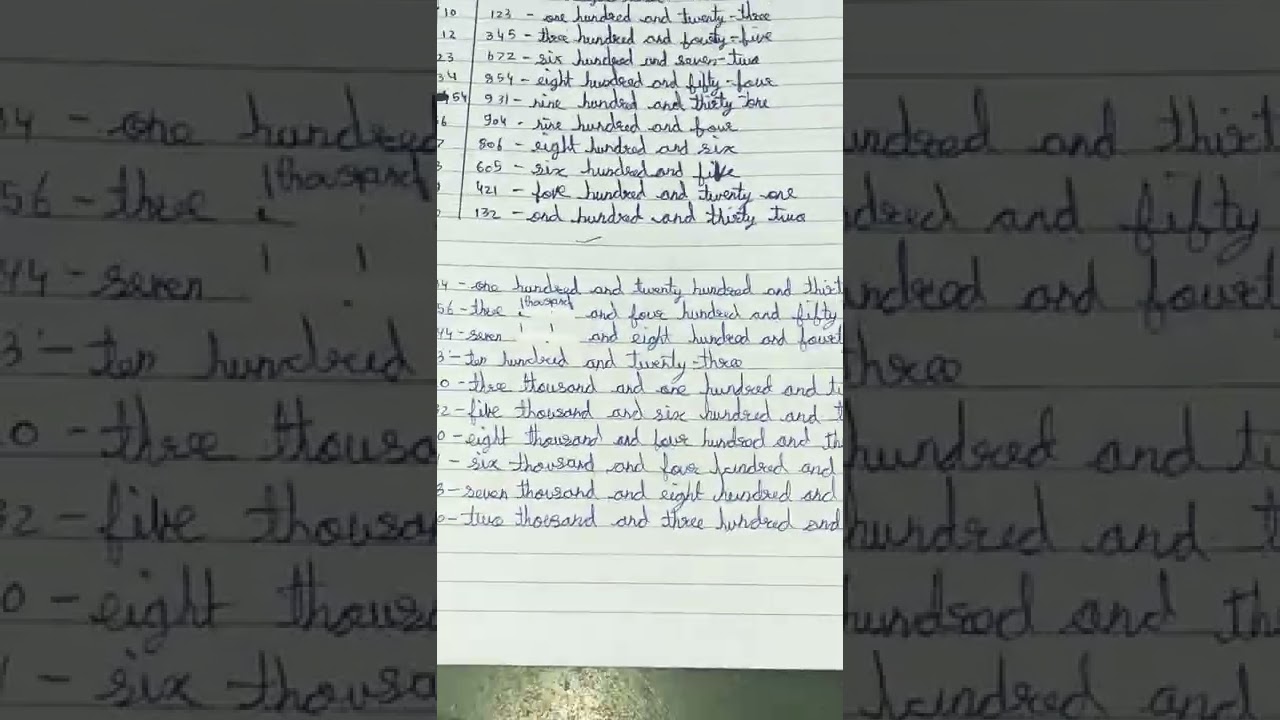 10 123 - one hundred and twenty-three
12 345 - three hundred and fourty-five
23 672 - six hundred and seven-two
34 854 - eight hundred and fifty-four
54 931 - nine hundred and thirty-one
6 904 - nine hundred and four
7 806 - eight hundred and six
3 605 - six hundred and five
421 - four hundred and twenty one
132 - ond hundred and thirty two
14 - one hundred and twenty hundred and thirt
56 - three thousand and four hundred and fifty
44 - seven " " and eight hundred and fourt
3 - ten hundred and twenty-three
0 - three thousand and one hundred and tw
32 - five thousand and six hundred and t
0 - eight thousand and four hundred and th
1 - six thousand and four hundred and
3 - seven thousand and eight hundred and
0 - two thousand and three hundred and